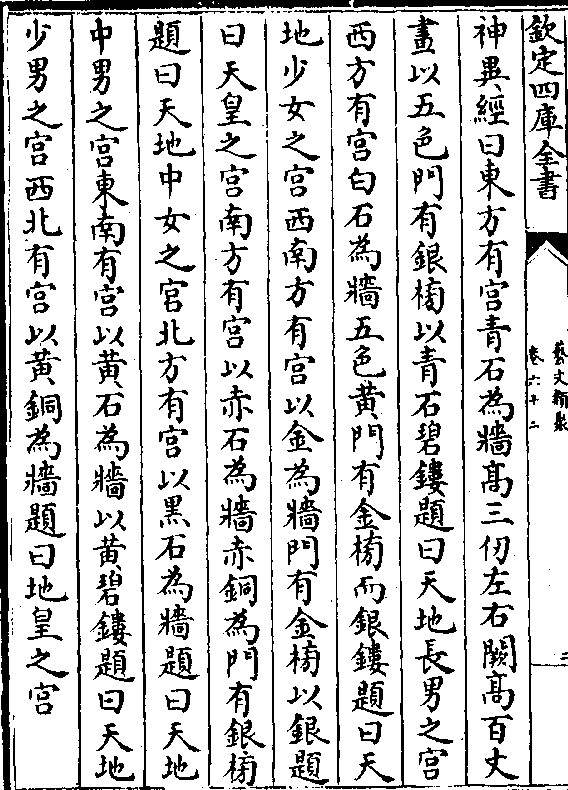 欽定四庫全書
藝文類聚
卷六十二
三
神異經曰東方有宫青石為牆髙三仞左右闕髙百丈
畫以五色門有銀牓以青石碧鏤題曰天地長男之宫
西方有宫白石為牆五色黄門有金牓而銀鏤題曰天
地少女之宫西南方有宫以金為牆門有金牓以銀題
曰天皇之宫南方有宫以赤石為牆赤銅為門有銀牓
題曰天地中女之宫北方有宫以黑石為牆題曰天地
中男之宫東南有宫以黄石為牆以黄碧鏤題曰天地
少男之宫西北有宫以黄銅為牆題曰地皇之宫